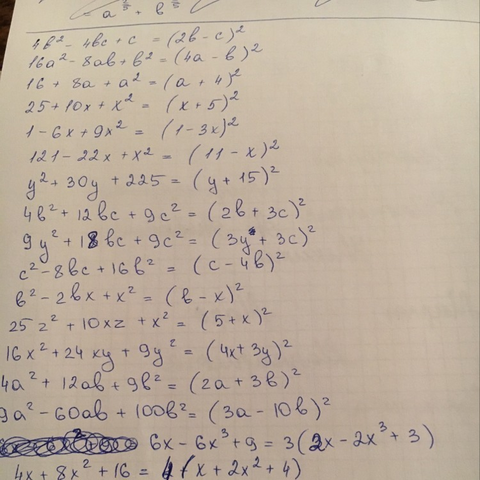 a^{5/3} + b^{5/3}
4b² - 4bc + c = (2b - c)²
16a² - 8ab + b² = (4a - b)²
16 + 8a + a² = (a + 4)²
25 + 10x + x² = (x + 5)²
1 - 6x + 9x² = (1 - 3x)²
121 - 22x + x² = (11 - x)²
y² + 30y + 225 = (y + 15)²
4b² + 12bc + 9c² = (2b + 3c)²
9y² + 18bc + 9c² = (3y + 3c)²
c² - 8bc + 16b² = (c - 4b)²
b² - 2bx + x² = (b - x)²
25z² + 10xz + x² = (5 + x)²
16x² + 24xy + 9y² = (4x + 3y)²
4a² + 12ab + 9b² = (2a + 3b)²
9a² - 60ab + 100b² = (3a - 10b)²
6x - 6x³ + 9 = 3(2x - 2x³ + 3)
4x + 8x² + 16 = 4(x + 2x² + 4)